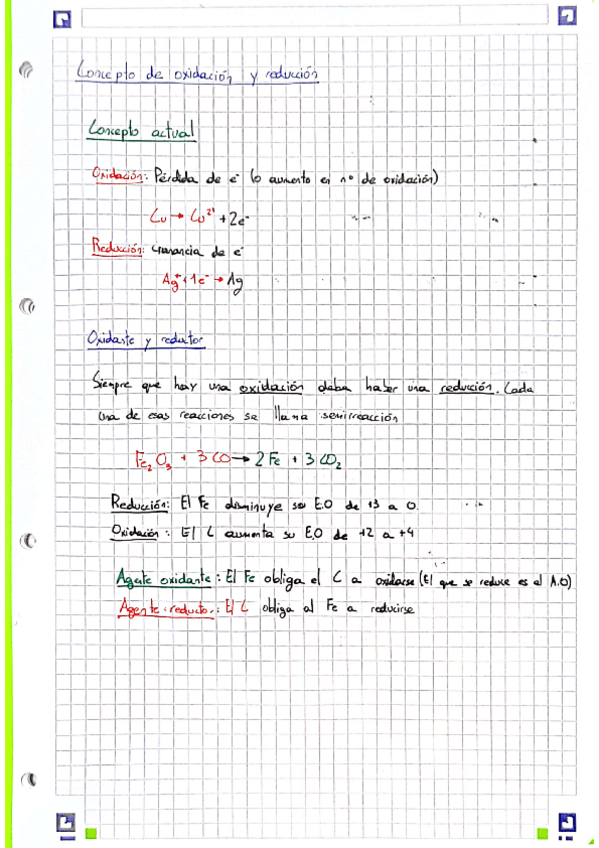 Concepto de oxidación y reducción
Concepto actual
Oxidación: Pérdida de e⁻ (o aumento en nº de oxidación)
Cu → Cu²⁺ + 2e⁻
Reducción: Ganancia de e⁻
Ag⁺ + 1e⁻ → Ag
Oxidante y reductor
Siempre que hay una oxidación debe haber una reducción. Cada
una de esas reacciones se llama semirreacción
Fe₂O₃ + 3CO → 2Fe + 3CO₂
Reducción: El Fe disminuye su E.O de +3 a 0.
Oxidación: El C aumenta su E.O de +2 a +4
Agente oxidante: El Fe obliga el C a oxidarse (El que se reduce es el A.O)
Agente reductor: El C obliga al Fe a reducirse